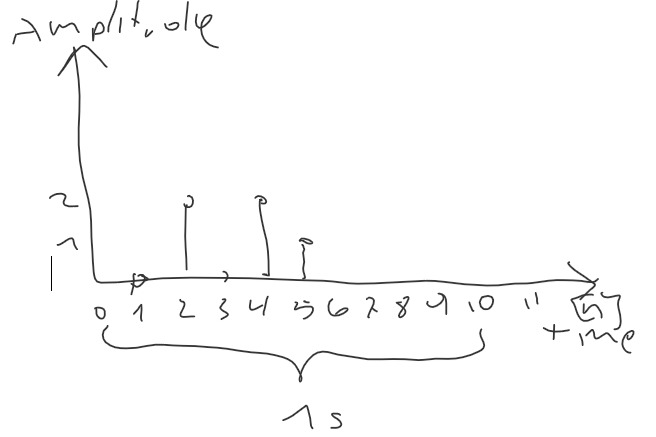 Amplitude
2
1
0 1 2 3 4 5 6 7 8 9 10 11 [n]
time
1s